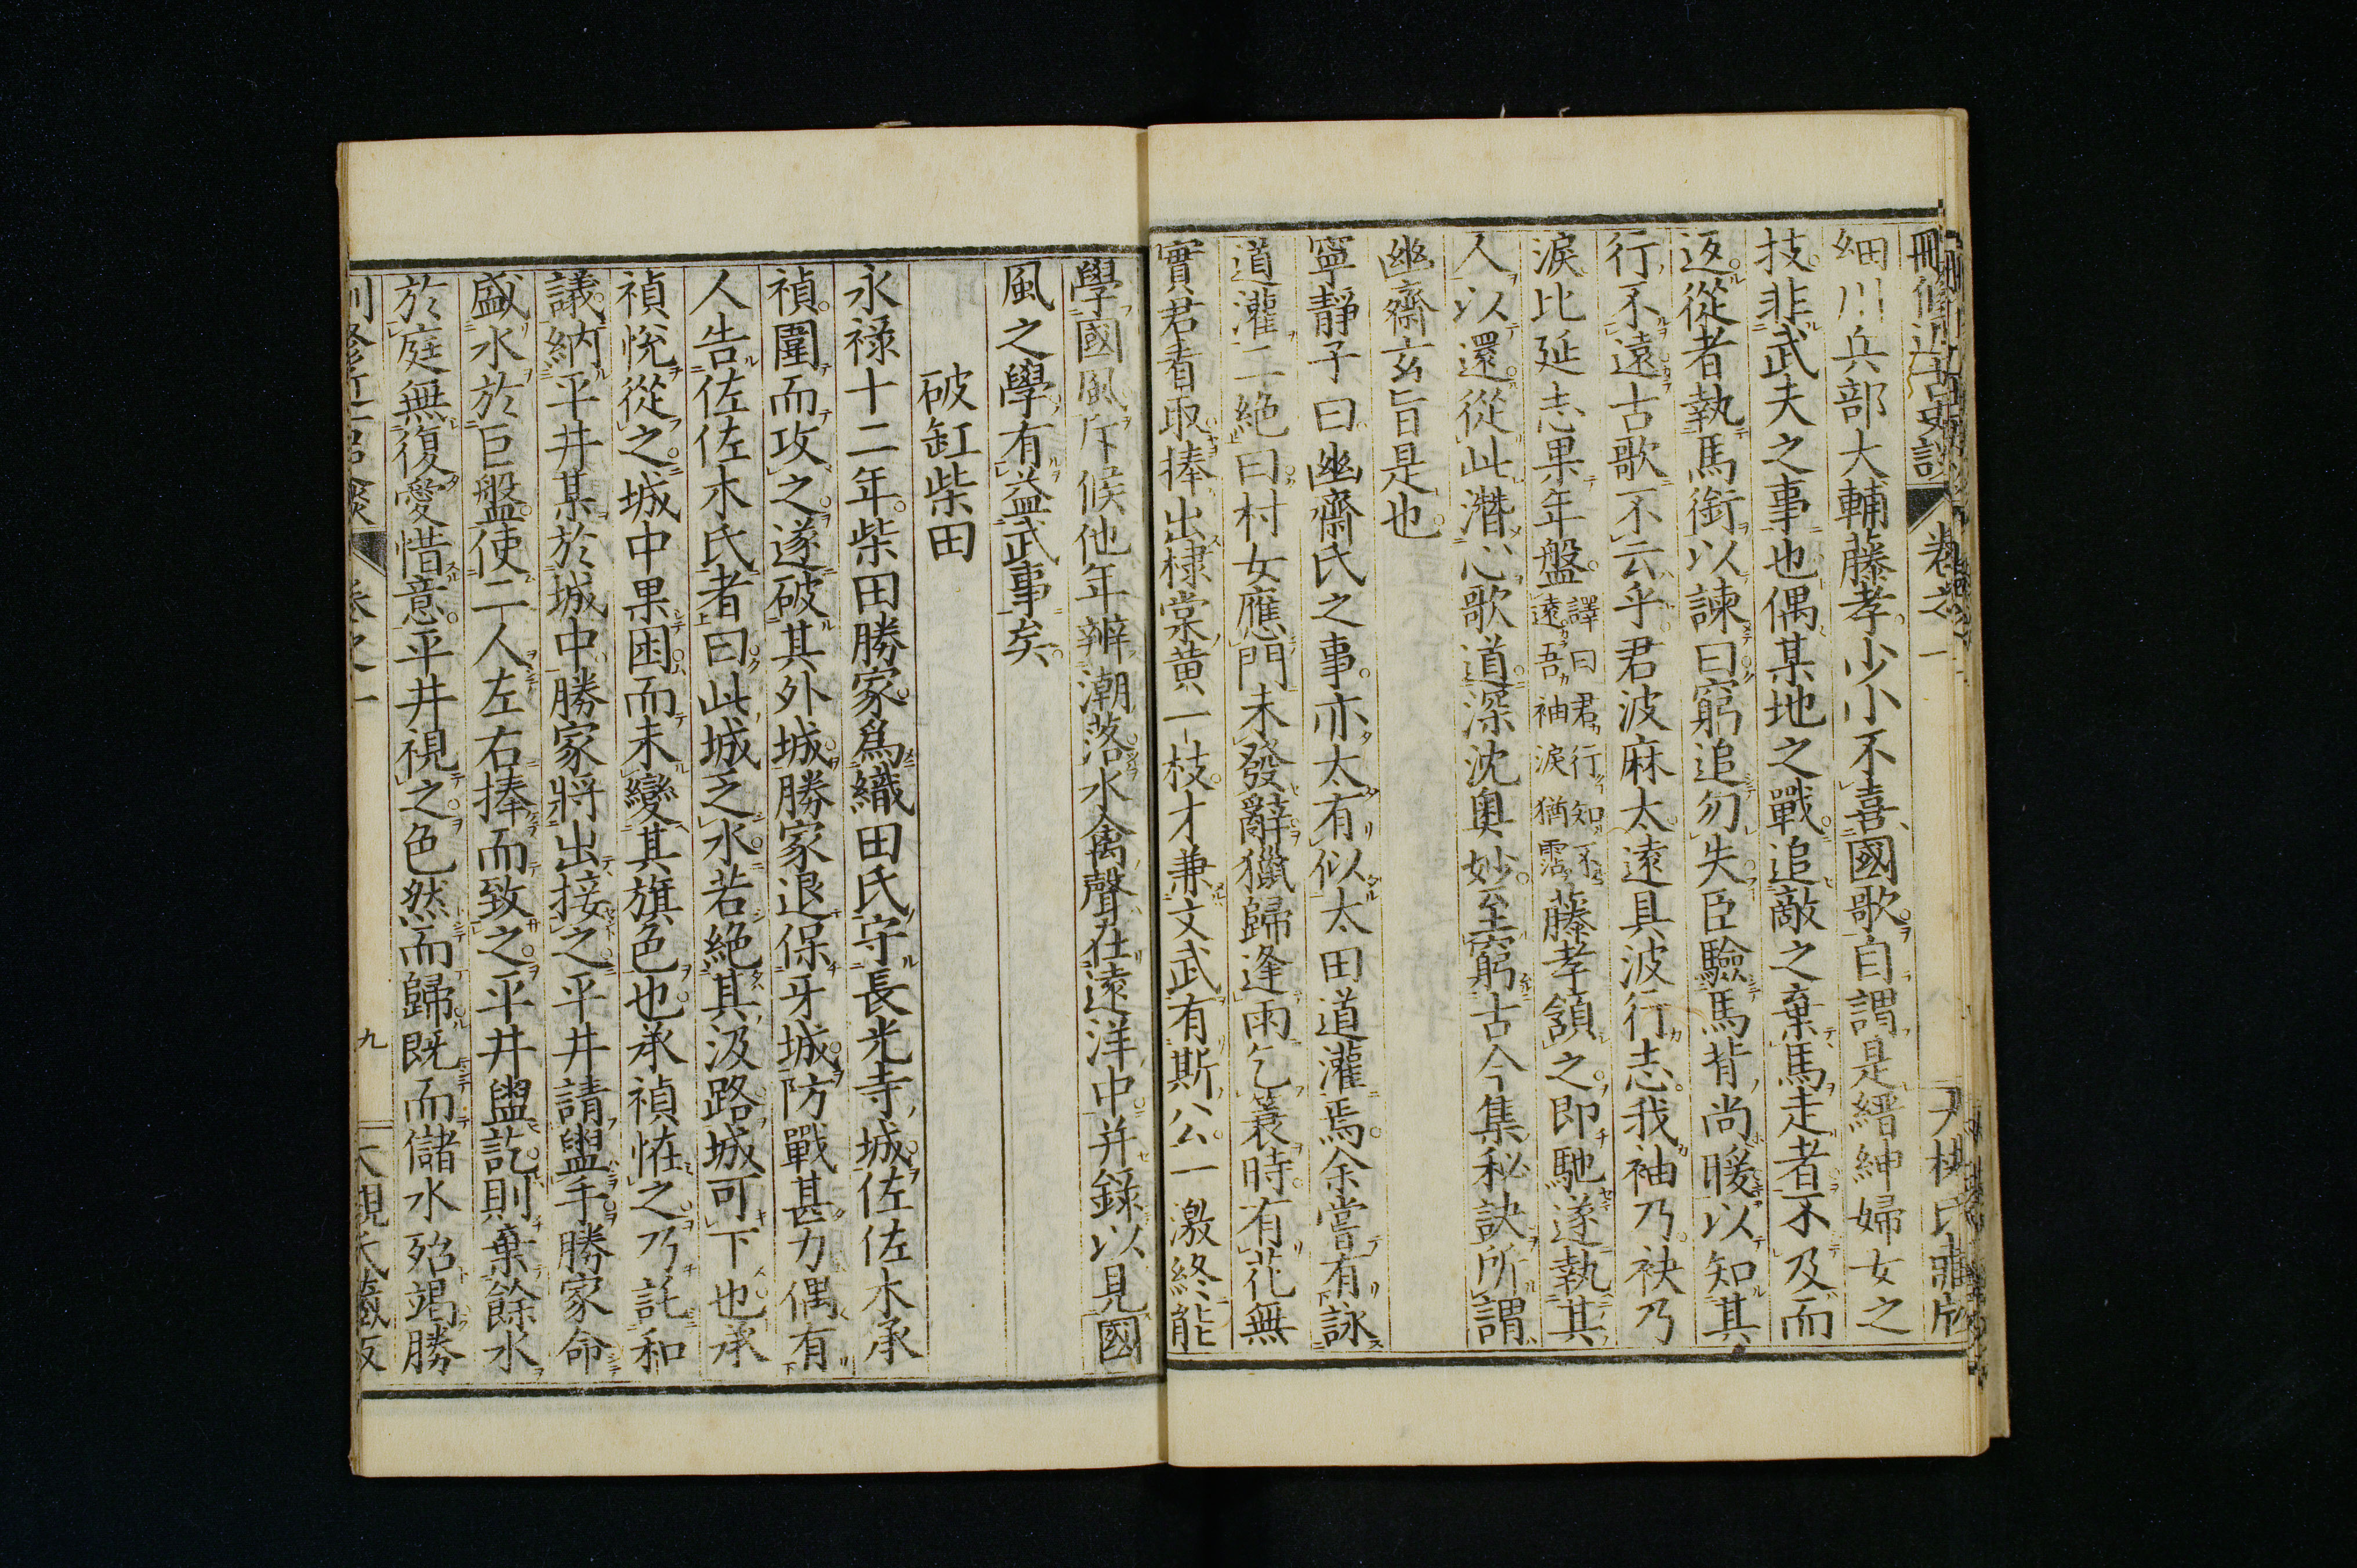 細川兵部大輔藤孝少小不喜國歌自謂是縉紳婦女之
技非武夫之事也偶某地之戰追敵之棄馬走者不及而
返從者執馬銜以諫曰窮追勿失臣驗馬背尚暖以知其
行不遠古歌不云乎君波麻太遠具波行志我袖乃袂乃
淚比延志果年盤譯曰君行知不遠吾袖淚猶霑藤孝頷之即馳遂執其
人以還從此潛心歌道深沈奧妙至窮古今集秘訣所謂
幽齋玄旨是也
寧靜子曰幽齋氏之事亦太有似太田道灌焉余嘗有詠
道灌二絕曰村女應門未發辭獵歸逢雨乞蓑時有花無
實君看取捧出棣棠黄一枝才兼文武有斯公一激終能
學國風斥候他年辨潮落水禽聲在遠洋中并錄以見國
風之學有益武事矣
破缸柴田
永祿十二年柴田勝家爲織田氏守長光寺城佐佐木承
禎圍而攻之遂破其外城勝家退保牙城防戰甚力偶有
人告佐佐木氏者曰此城乏水若絕其汲路城可下也承
禎悅從之城中果困而未變其旗色也承禎怪之乃託和
議納平井某於城中勝家將出接之平井請盥手勝家命
盛水於巨盤使二人左右捧而致之平井盥訖則棄餘水
於庭無復愛惜意平井視之色然而歸既而儲水殆竭勝
九